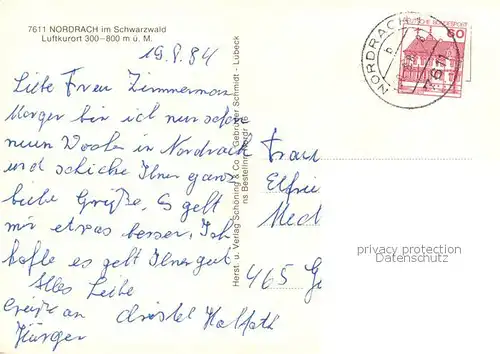 7611 NORDRACH im Schwarzwald
Luftkurort 300–800 m ü. M.
19.8.84
Liebe Frau Zimmermann
Morgen bin ich nun schon
neun Wochen in Nordrach
und schicke Ihnen ganz
liebe Grüße. Es geht
mir etwas besser. Ich
hoffe es geht Ihnen gut
Alles Liebe
Grüße an Christel
Jürgen
Herst. u. Verlag Schöning & Co. + Gebrüder Schmidt - Lübeck
ns Bestellnr.
Frau
Elfrie
Med
465 Ge
DEUTSCHE BUNDESPOST
60
NORDRACH
7611
privacy protection
Datenschutz